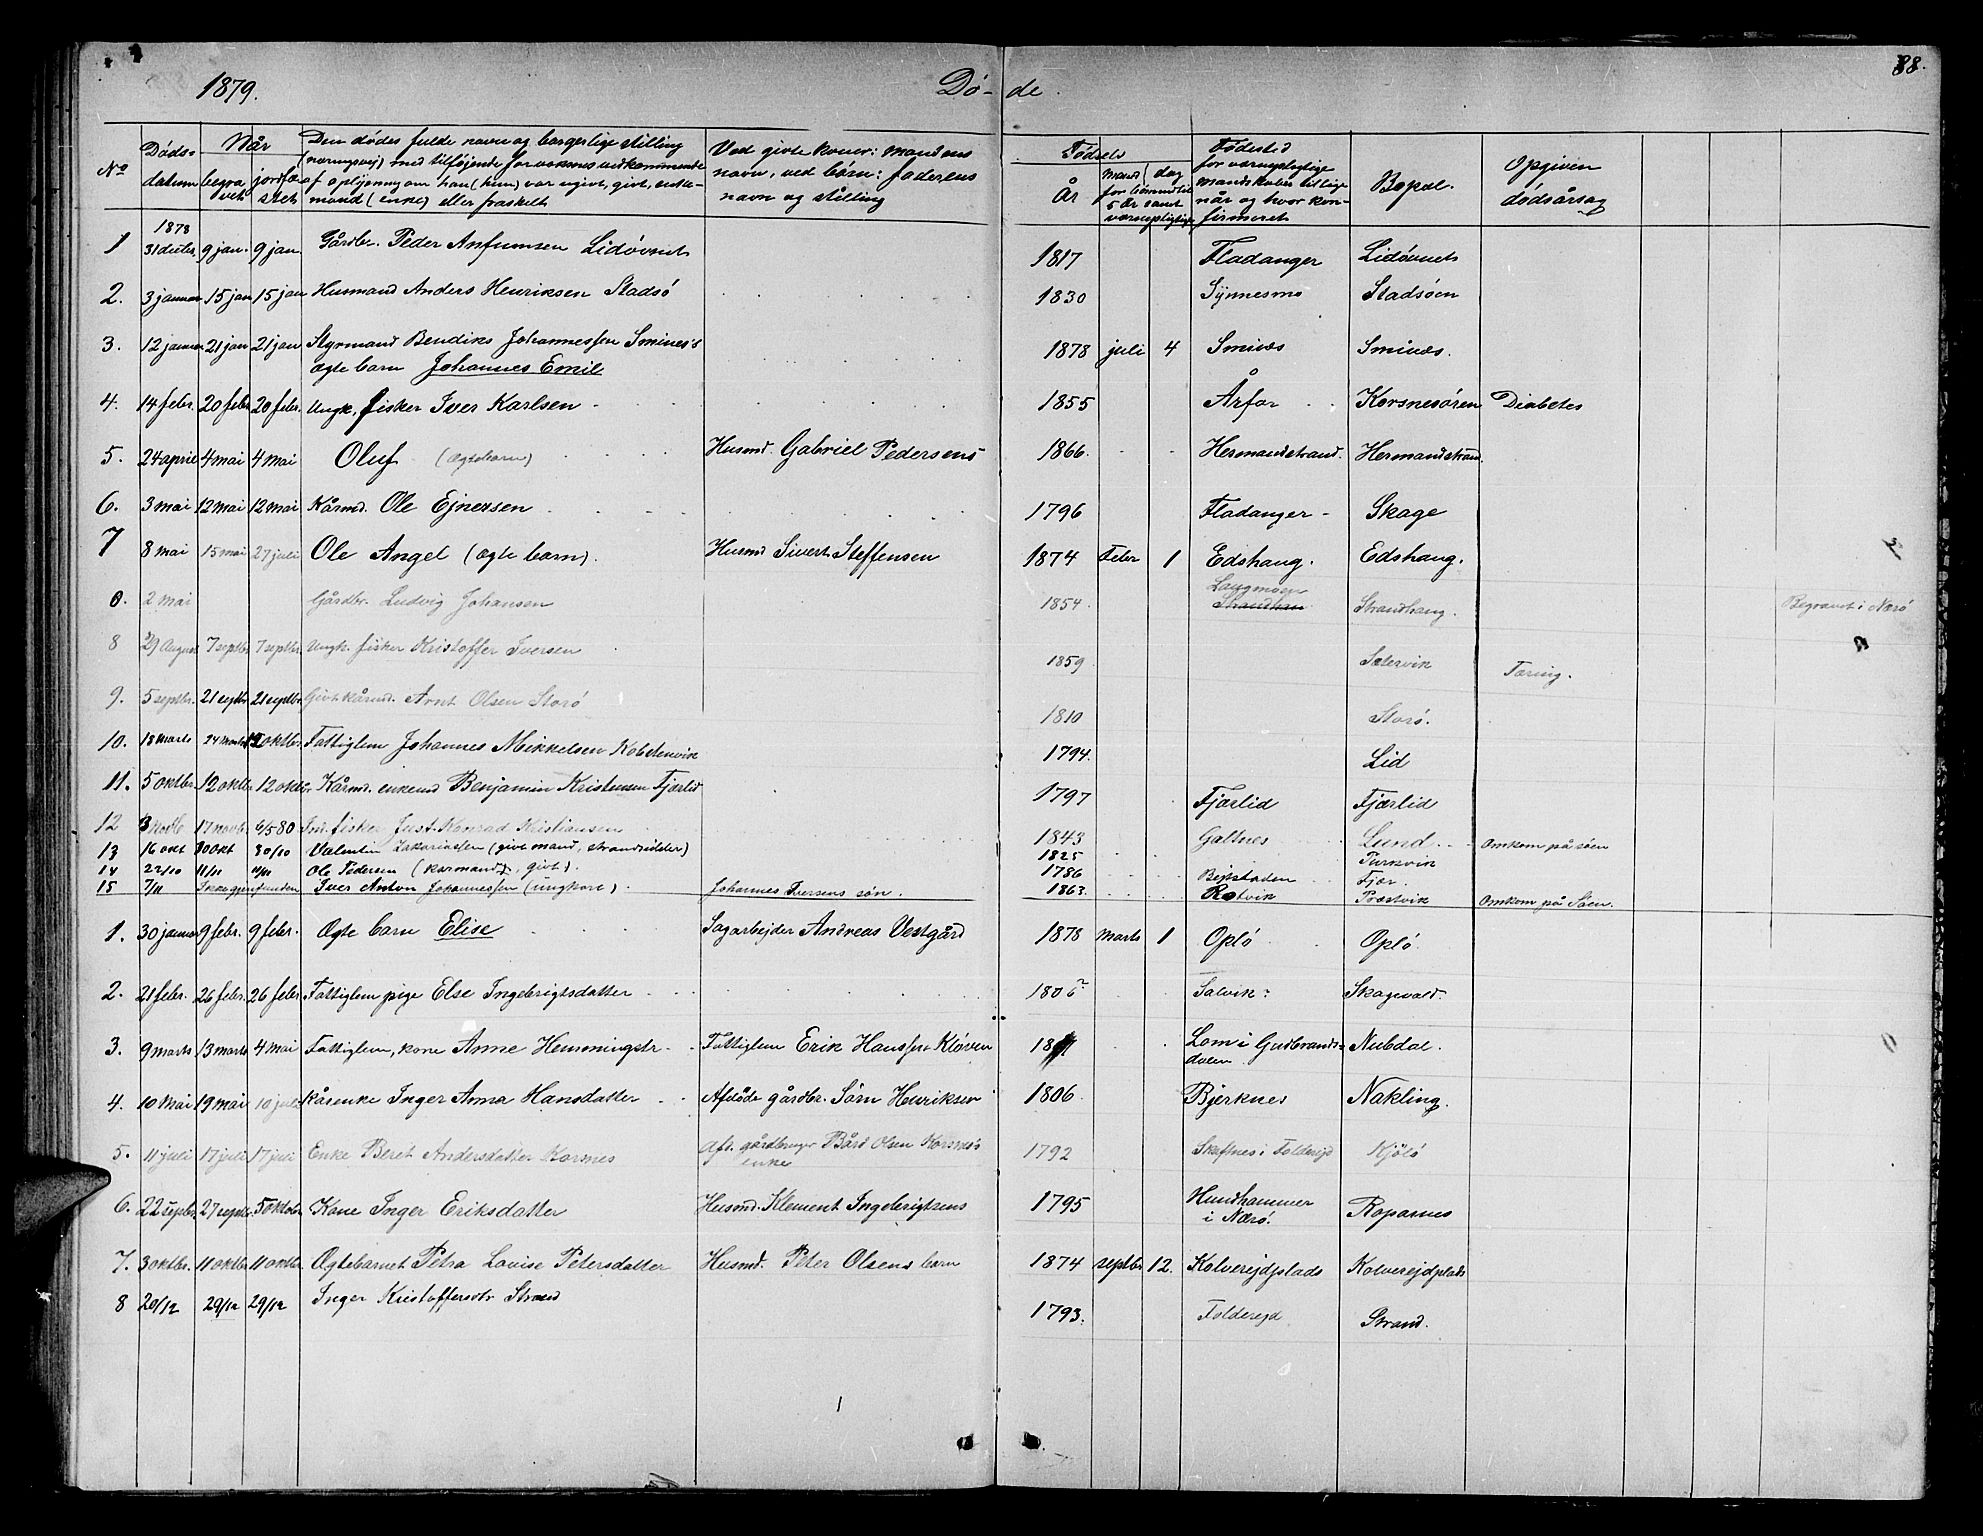 1879. Dö- de. 88.
No Döds- datum Når begra- vet jordfæ- stet Den dödes fulde navn og borgerlige stilling (næringsvej) med tilföjende for voksnes vedkommende af oplysning om han (hun) var ugivt, givt, enke- mand (enke) eller fraskelt Ved givte koner: mandens navn, ved börn: faderens navn og stilling Födsels År maned dag for börn indtil 5 år samt værnepligtige Födested for værnepligtige mandskaber tillige når og hvor kon- firmeret Bopæl. Opgiven dödsårsag
1878
1 31 decbr. 9 jan. 9 jan. Gårdbr. Peder Anfinnsen Lidövnet 1817 Fladanger Lidövnet
2. 3 januar 15 jan 15 jan Husmand Anders Henriksen Stadsö 1830 Synnesmo Stadsöen
3. 12 januar 21 jan 21 jan Styrmand Bendiks Johannessen Sminæs's 1878 juli 4 Sminæs Sminæs.
ægte barn Johannes Emil
4. 14 febr. 20 febr. 20 febr. Ungk. fisker Iver Karlsen 1855 Årfor Korsnesören Diabetes
5. 24 april 4 mai 4 mai Oluf (Ægtebarn) Husmd. Gabriel Pedersens 1866 Hermandstrand. Hermandstrand.
6. 3 mai 12 mai 12 mai Kårmd. Ole Ejnersen 1796 Fladanger Skage
7 8 mai 15 mai 27 juli Ole Angel (ægte barn). Husmd Sivert Steffensen 1874 Febr 1 Edshaug. Edshaug.
0. 2 mai Gårdbr. Ludvig Johansen 1854 Langmoen Strandhau Strandhaug. Begravet i Nærö
8 29 August 7 septbr. 7 septbr. Ungk. fisker Kristoffer Iversen 1859 Sætervik Tæring.
9. 5 septbr. 21 septbr 21 septbr. Givt kårmd. Arnt Olsen Storö 1810 Storö.
10. 18 marts 24 marts 12 oktbr. Fattiglem Johannes Mikkelsen Kolstenvik 1794. Lid
11. 5 oktbr. 12 oktbr 12 oktbr Kårmd. enkemd Benjamin Kristensen Fjærlid 1797 Fjærlid Fjærlid
12 3 Novb 17 novb. 6/5 80 Ind. fisker Just Konrad Kristiansen 1843 Galtnes Lund
13 16 okt 30 okt 30/10 Valentin Zakariassen (givt mand, strandsidder) 1825 Purkvik Omkom på söen
14 22/10 11/11 11/11 Ole Pedersen (kårmand, givt). 1786 Bejstaden Fjær.
15 7/11 Ikke gjenfunden Iver Anton Johannessen (ungkarl). Johannes Iversens sön. 1863. Rotvik Præstvik Omkom på Söen.
1. 30 januar 9 febr. 9 febr. Ægte barn Elise Sagarbejder Andreas Vestgård 1878 marts 1 Oplö Oplö
2. 21 febr. 26 febr. 26 febr Fattiglem pige Else Ingebrigtsdatter 1806 Salvik Skagevald.
3. 9 marts 13 marts 4 mai Fattiglem, kone Anne Hemmingsdtr Fattiglem Erik Hanssen Klöven Lom i Gudbrands- dalen Nubdal.
4. 10 Mai 19 mai 10 juli Kårenke Inger Anna Hansdatter Afdöde gårdbr. Sörn Henriksen 1806 Bjerknes Nakling.
5. 11 juli 17 juli 17 juli Enke Beret Andersdatter Korsnes Afd. gårdbruger Bård Olsen Korsnæs's enke 1792 Skaftnes i Folderejd Kjölö
6. 22 septbr. 27 septbr. 5 oktober Kone Inger Eriksdatter Husmd. Klement Ingebrigtsens 1795 Hundhammer i Nærö. Roparnes
7. 3 oktbr. 11 oktbr. 11 oktbr. Ægtebarnet Petra Lovise Petersdatter Husmd. Peter Olsens barn 1874 septbr 12. Kolverejdplads Kolverejdplads
8 20/12 29/12 29/12 Inger Kristoffersdtr Strand 1793. Folderejd Strand.